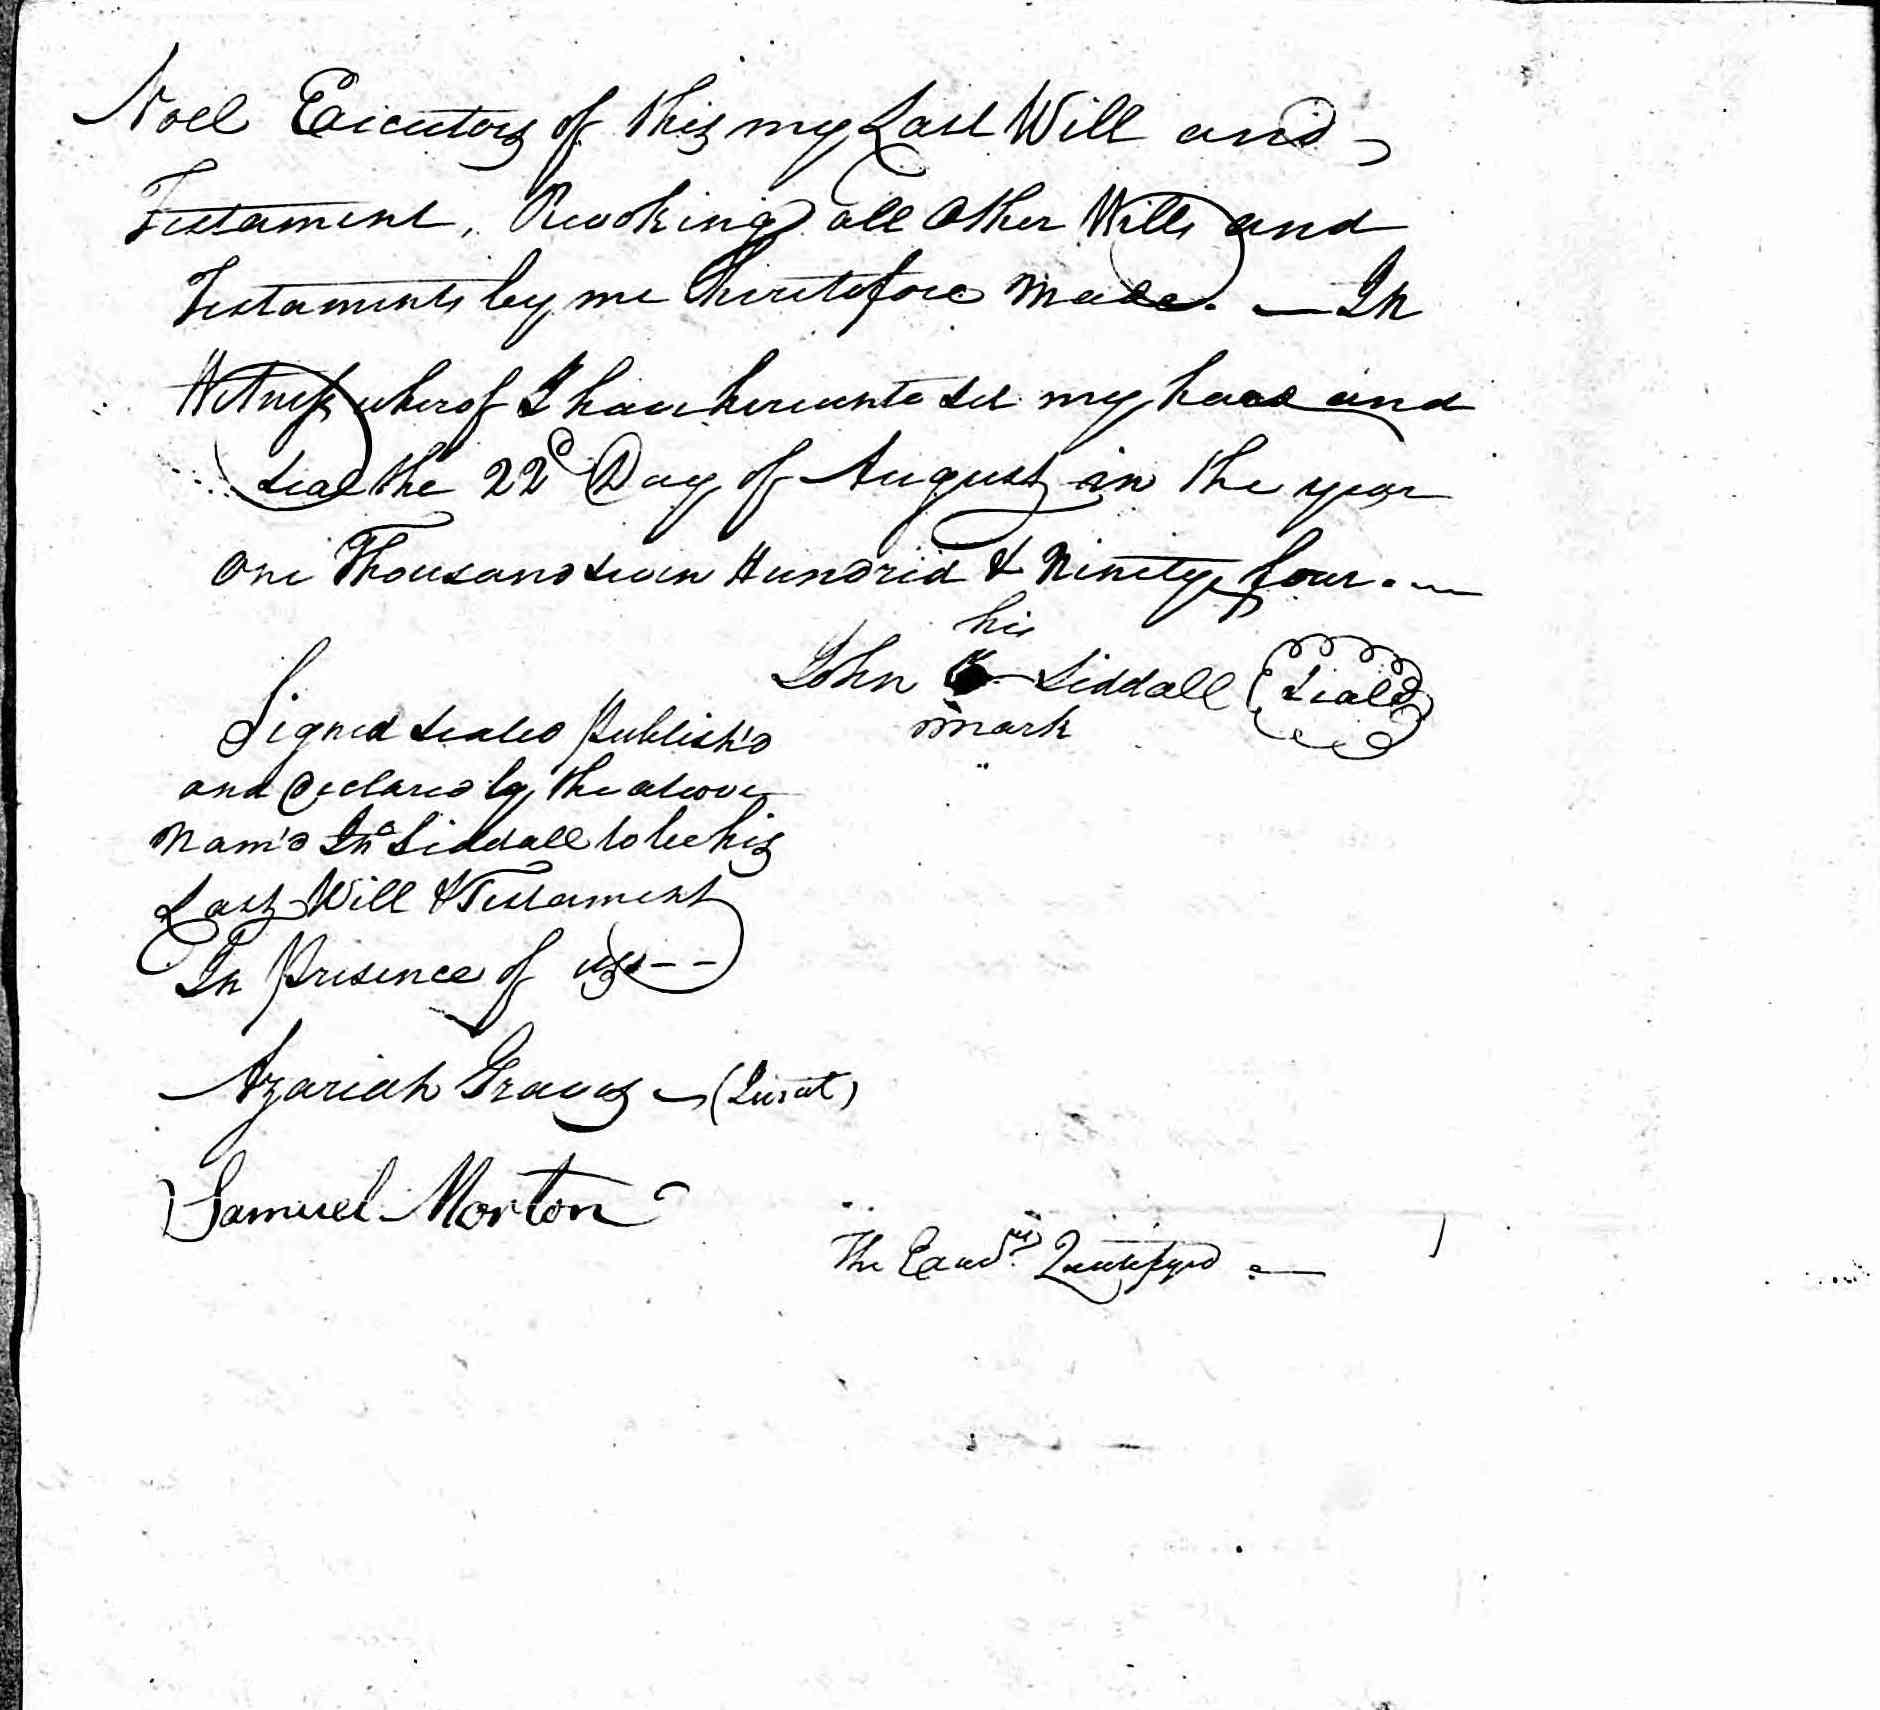 Noel Executors of this my Last Will and
Testament, Revoking all Other Wills and
Testaments by me heretofore Made. — In
Witness wherof I have hereunto set my hand and
seal the 22d Day of August in the year
One Thousand seven Hundred & Ninety four. —
his
John Siddall (Seald)
mark
Signed sealed Publish'd
and Declared by the above
Nam'd Jno Siddall to be his
Last Will & Testament
In Presence of us - -
Azariah Graves — (Jurat)
Samuel Morton
The Exors Qualifyed —